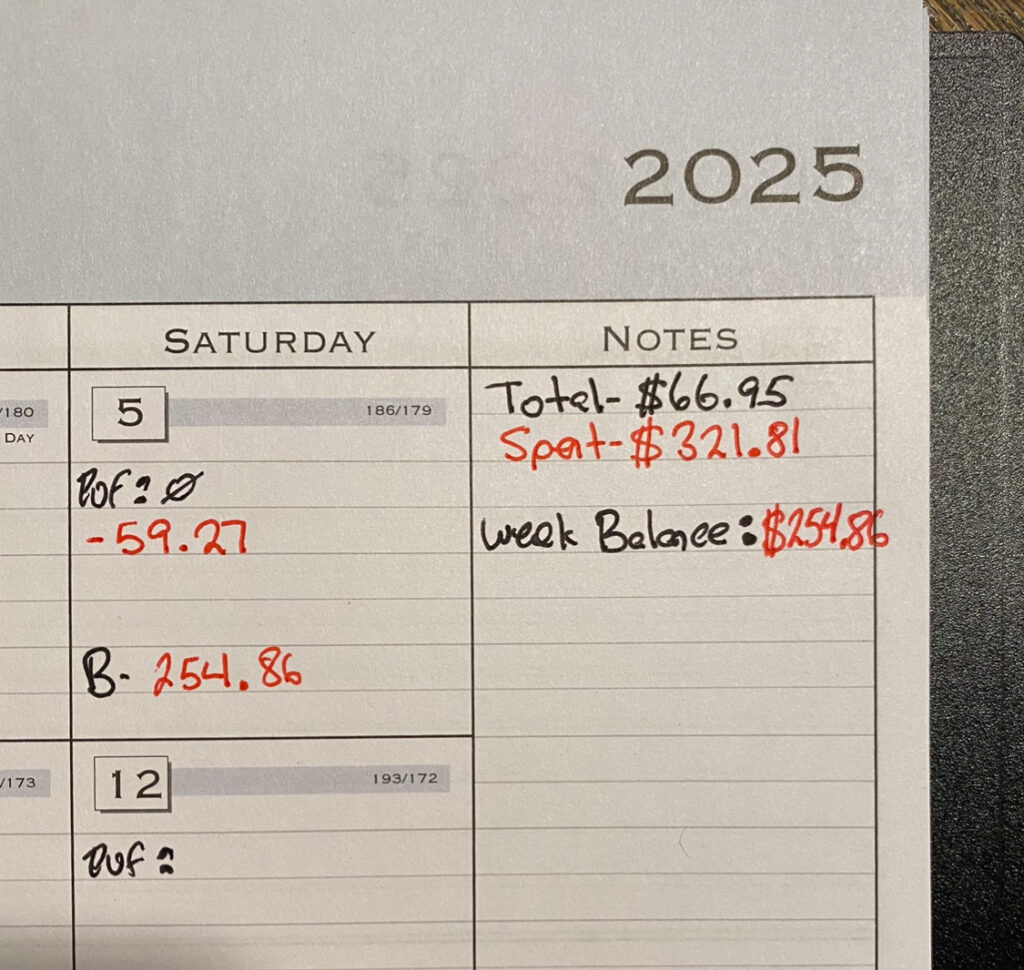 2025
SATURDAY
NOTES
/180
DAY
5
186/179
Total- $66.95
Spent- $321.81
-59.27
week Balance: $254.86
B- 254.86
/173
12
193/172